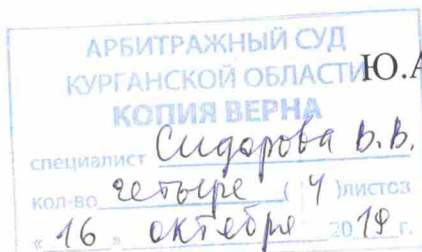 АРБИТРАЖНЫЙ СУД
КУРГАНСКОЙ ОБЛАСТИ Ю.А
КОПИЯ ВЕРНА
специалист Сидорова В.В.
кол-во четыре ( 4 )листов
« 16 » октября 2019 г.